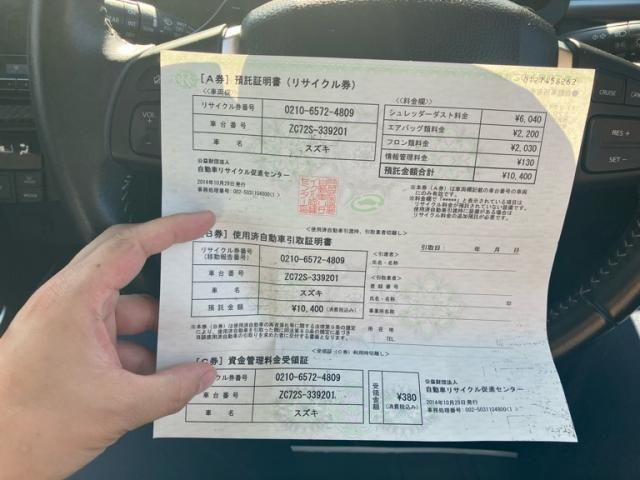 0127458262
[A券] 預託証明書 (リサイクル券)
<<車両欄>>
リサイクル券番号 0210-6572-4809
車台番号 ZC72S-339201
車名 スズキ
公益財団法人
自動車リサイクル促進センター
2014年10月29日発行
<<料金欄>>
シュレッダーダスト料金 ¥6,040
エアバッグ類料金 ¥2,200
フロン類料金 ¥2,030
情報管理料金 ¥130
預託金額合計 ¥10,400
※本券(A券)は車両欄記載の車台番号の車両にのみ有効です。
<使用済自動車引渡時、引取業者切離し>
[B券] 使用済自動車引取証明書
リサイクル券番号
(移動報告番号) 0210-6572-4809
車台番号 ZC72S-339201
車名 スズキ
預託金額 ¥10,400 (消費税込み)
引取日: 年 月 日
<引渡者>
氏名・名称
<引取業者>
登録番号
氏名・名称
事業所名
所在地
TEL
[C券] 資金管理料金受領証
リサイクル券番号 0210-6572-4809
車台番号 ZC72S-339201
車名 スズキ
受領金額 ¥380
(消費税込み)
公益財団法人
自動車リサイクル促進センター
2014年10月29日発行
VOL
CRUISE
CAN
RES +
SET -